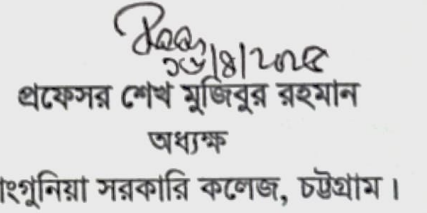 প্রফেসর শেখ মুজিবুর রহমান
অধ্যক্ষ
াংগুনিয়া সরকারি কলেজ, চট্টগ্রাম।